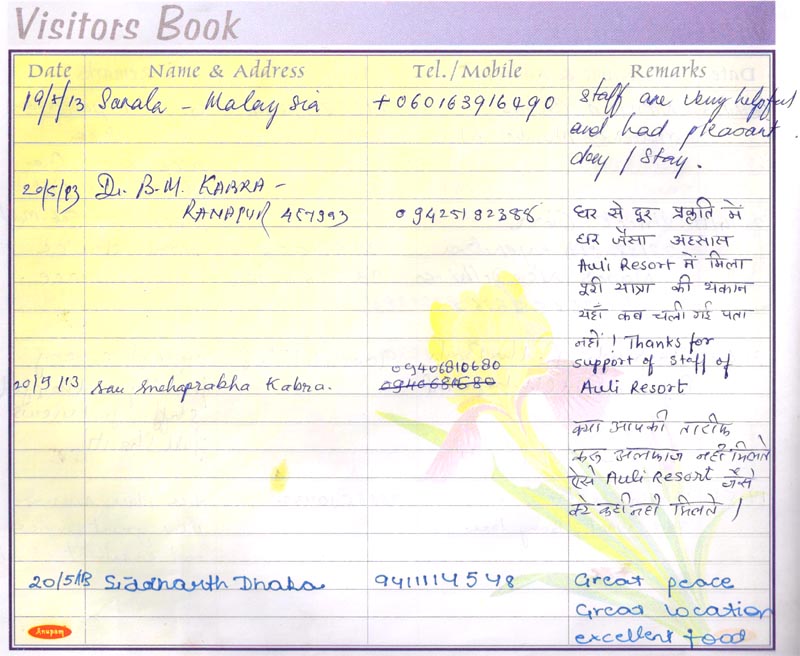 Visitors Book
Date Name & Address Tel./Mobile Remarks
19/5/13 Sarala - Malaysia +060163916490 staff are very helpful
and had pleasant
day / stay.
20/5/13 Dr. B.M. KABRA -
RANAPUR 457993 09425192388 घर से दूर प्रकृति में
घर जैसा अहसास
Auli Resort में मिला
पूरी यात्रा की थकान
यहाँ कब चली गई पता
नहीं ! Thanks for
support of staff of
Auli Resort
09406810680
20/5/13 Sau Snehaprabha Kabra.
क्या आपकी तारीफ
करू अलफाज नही मिलते
ऐसे Auli Resort जैसे
कही नही मिलते /
20/5/13 Siddharth Dhaka 9411114548 Great peace
Great location
excellent food
Anupam